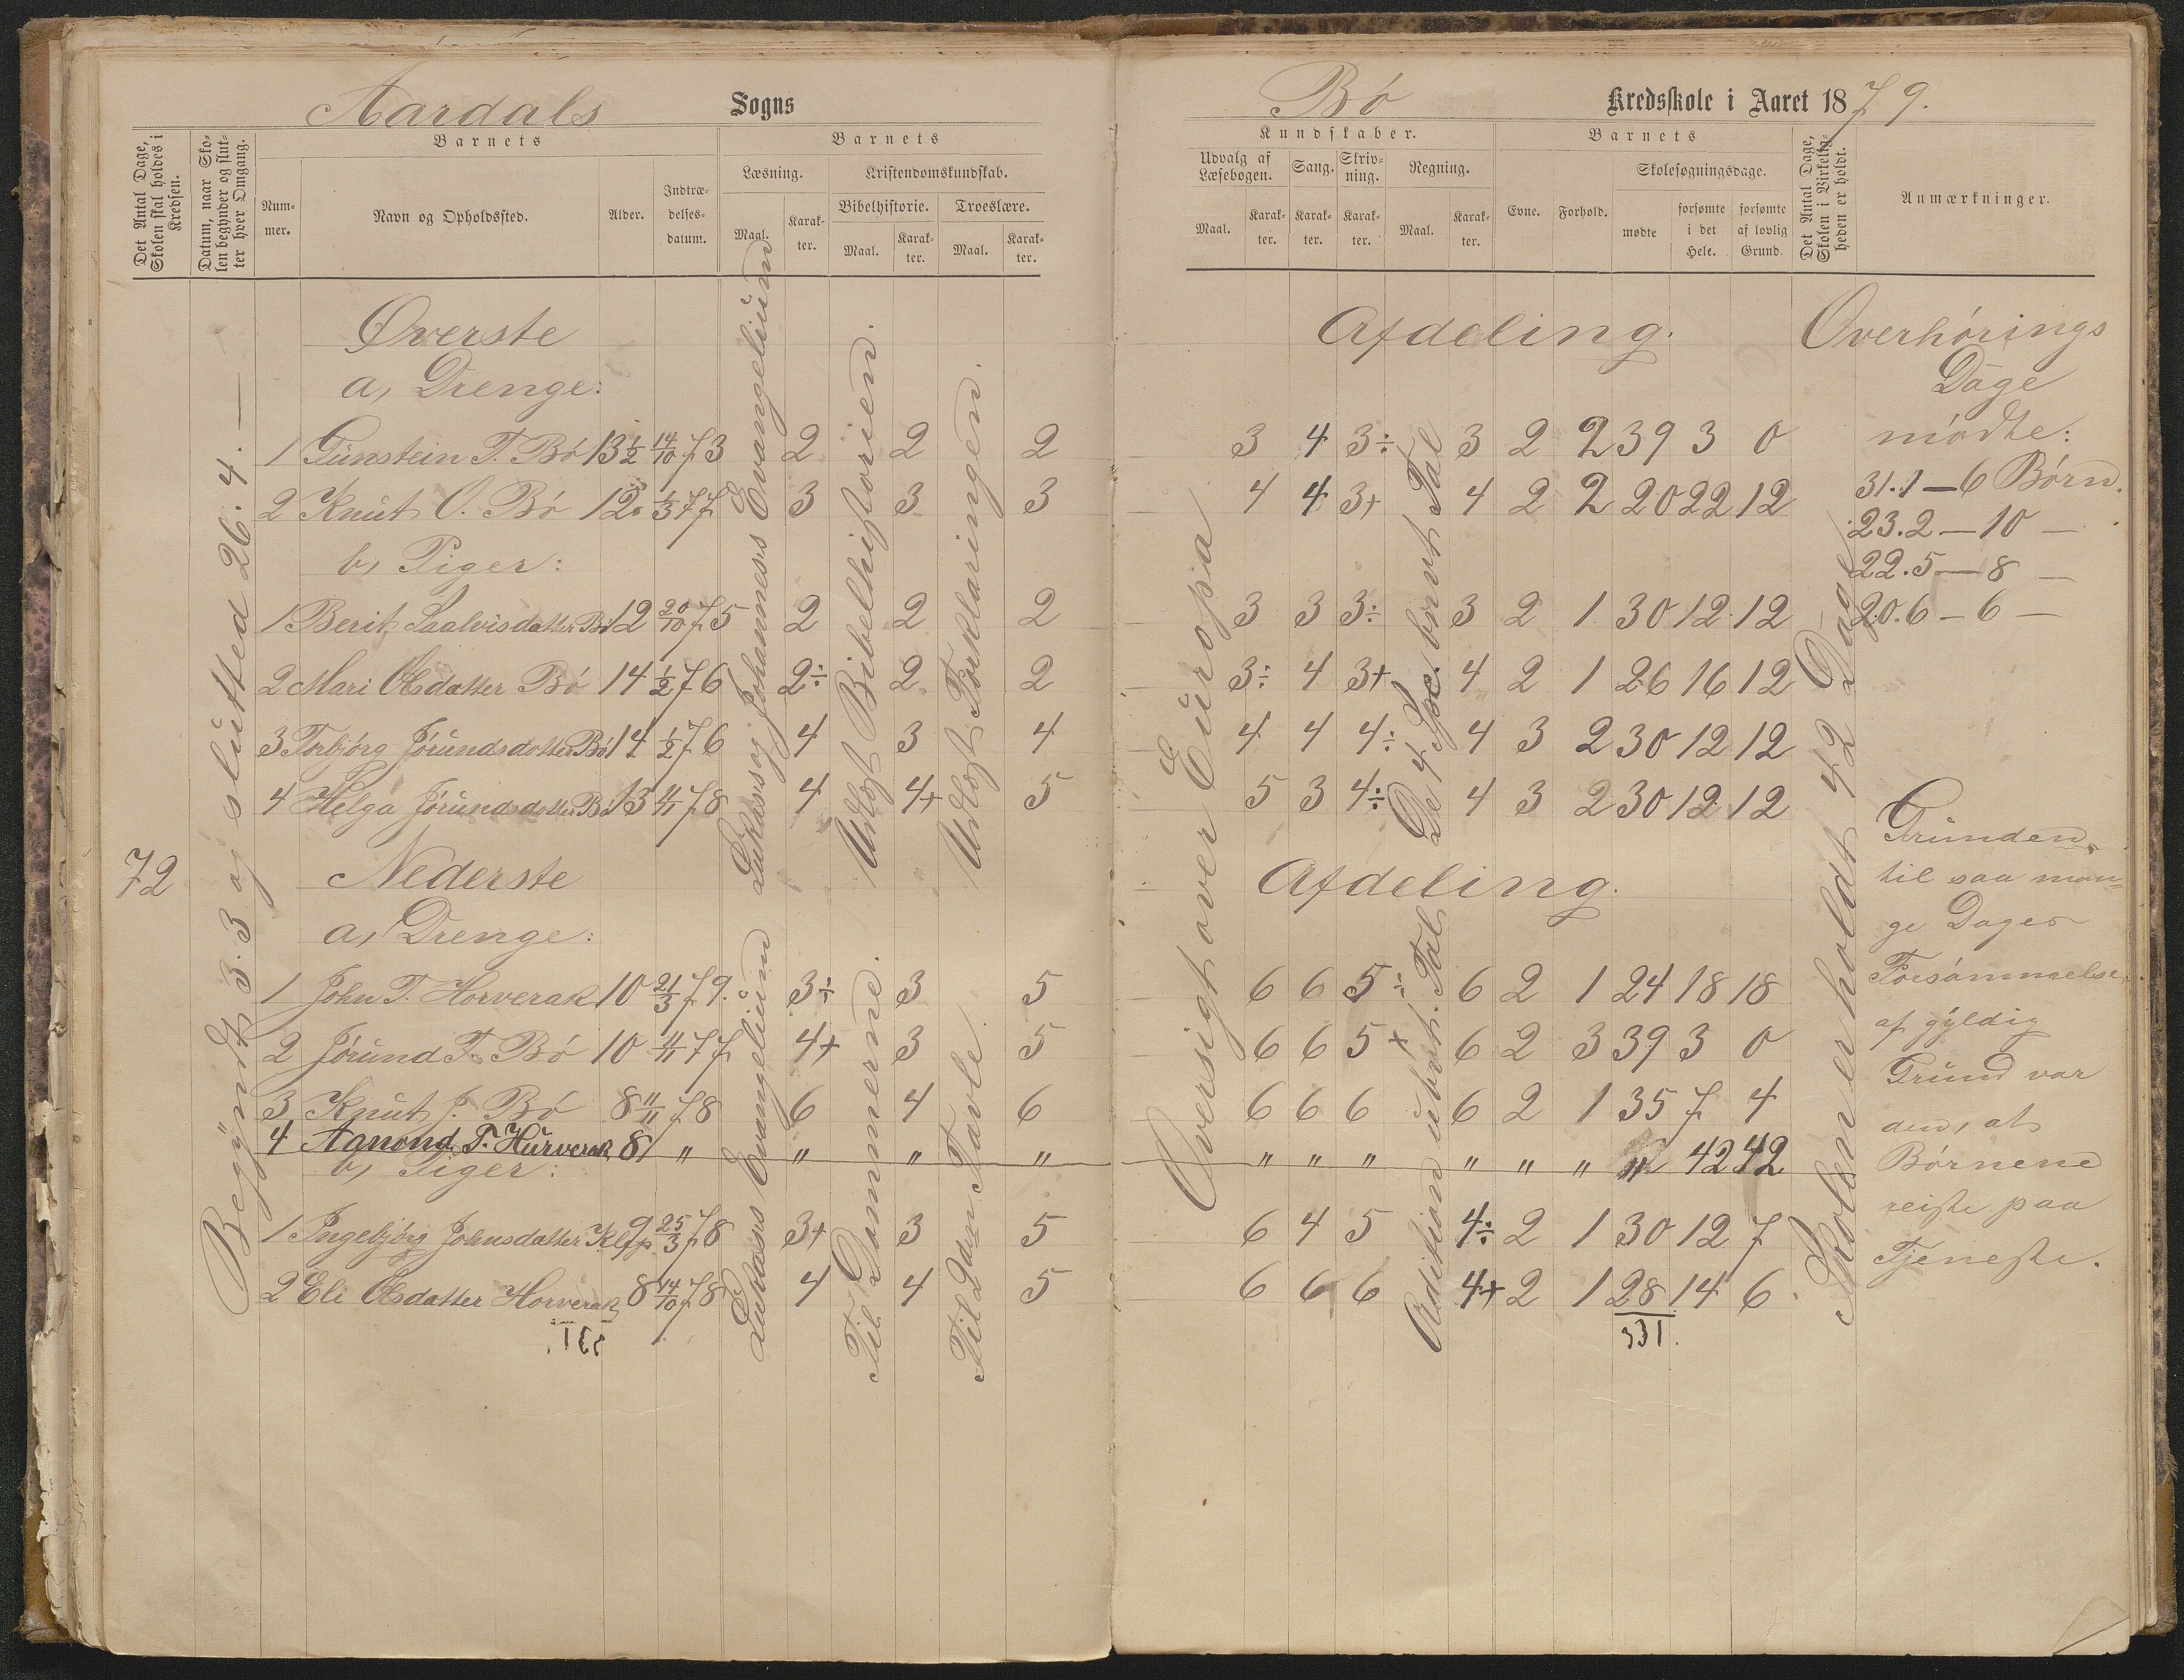 Aardals Sogns
Det Antal Dage, Skolen skal holdes i Kredsen.
Datum, naar Skolen begynder og slutter hver Omgang.
Barnets
Nummer.
Navn og Opholdssted.
Alder.
Indtrædelsesdatum.
Barnets
Læsning.
Maal.
Karakter.
Kristendomskundskab.
Bibelhistorie.
Maal.
Karakter.
Troeslære.
Maal.
Karakter.
72
Begyndt 3.3 og slutted 26.4.—
Lukas's og Johannes's Evangelium
Udtogt Bibelhistorien.
Udtogt Forklaringen.
Øverste
a, Drenge:
1 Gunstein T. Bö 13½ 14/10 73 2 2 2
2 Knut O. Bö 12 1/3 77 3 3 3
b, Piger:
1 Berit Saalvisdatter Bö 12 20/10 75 2 2 2
2 Mari Olsdatter Bö 14 1/2 76 2÷ 2 2
3 Torbjörg Jörundsdotter Bö 14 1/2 76 4 3 4
4 Helga Jörundsdotter Bö 13 4/11 78 4 4+ 5
Nederste
a, Drenge:
1 John T. Horverak 10 21/3 79. 3÷ 3 5
2 Jörund T. Bö 10 4/11 77 4+ 3 5
3 Knut J. Bö 8 11/11 78 6 4 6
4 Aanond T. Hurverak 8 " " " "
b, Piger:
1 Ingebjörg Johnsdatter Klep 9 25/3 78 3+ 3 5
2 Eli Olsdatter Horverak 8 14/10 78 4 4 5
Lukas's Evangelium
Til Dommerne.
Til 2den Tavle.
Bö Kredsskole i Aaret 1879.
Kundskaber.
Udvalg af Læsebogen.
Maal.
Karakter.
Sang.
Karakter.
Skrivning.
Karakter.
Regning.
Maal.
Karakter.
Barnets
Evne.
Forhold.
Skolesøgningsdage.
mødte
forsømte i det Hele.
forsømte af lovlig Grund.
Det Antal Dage, Skolen i Virkeligheden er holdt.
Anmærkninger.
Oversigt over Europa
De 4 Spec. brvt Tal
Skolen er holdt 42 Dage
Afdeling.
3 4 3÷ 3 2 2 39 3 0
4 4 3+ 4 2 2 20 22 12
3 3 3÷ 3 2 1 30 12 12
3÷ 4 3+ 4 2 1 26 16 12
4 4 4÷ 4 3 2 30 12 12
5 3 4÷ 4 3 2 30 12 12
Afdeling.
6 6 5÷ 6 2 1 24 18 18
6 6 5+ 6 2 3 39 3 0
6 6 6 6 2 1 35 7 4
" " " " " " " 42 42
6 4 5 4÷ 2 1 30 12 7
6 6 6 4+ 2 1 28 14 6
331.
Addition ubvt. Tal
Overhörings
Dage
mödte:
31.1 — 6 Börn.
23.2 — 10 —
22.5 — 8 —
20.6 — 6 —
Grunden
til saa man=
ge Dages
Forsömmelse
af gyldig
Grund var
den, at
Börnene
reiste paa
Tjeneste.